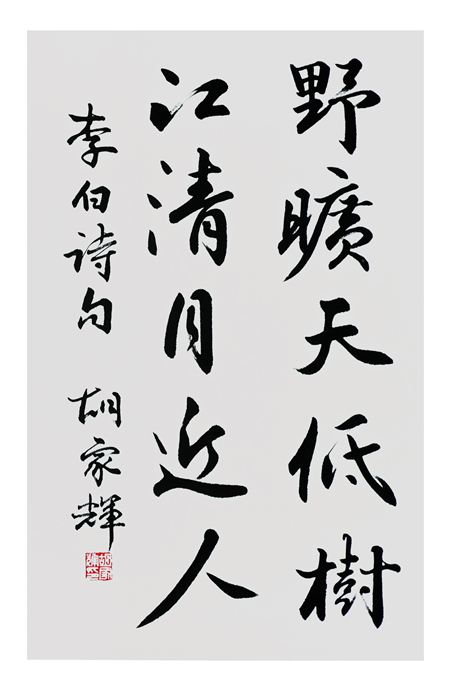 野曠天低樹
江清月近人
李白詩句 胡家輝